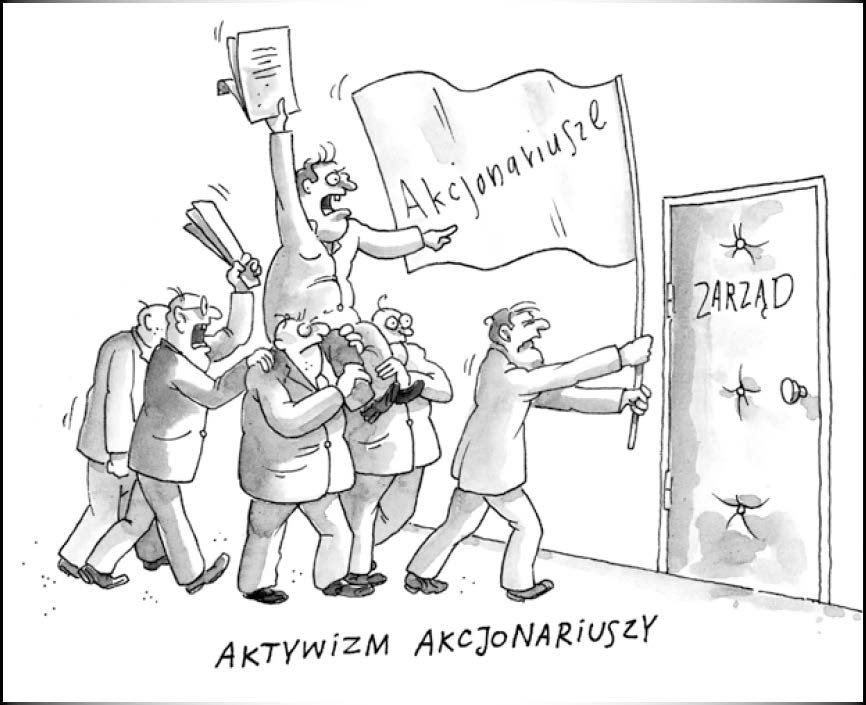 Akcjonariusze
ZARZĄD
AKTYWIZM AKCJONARIUSZY